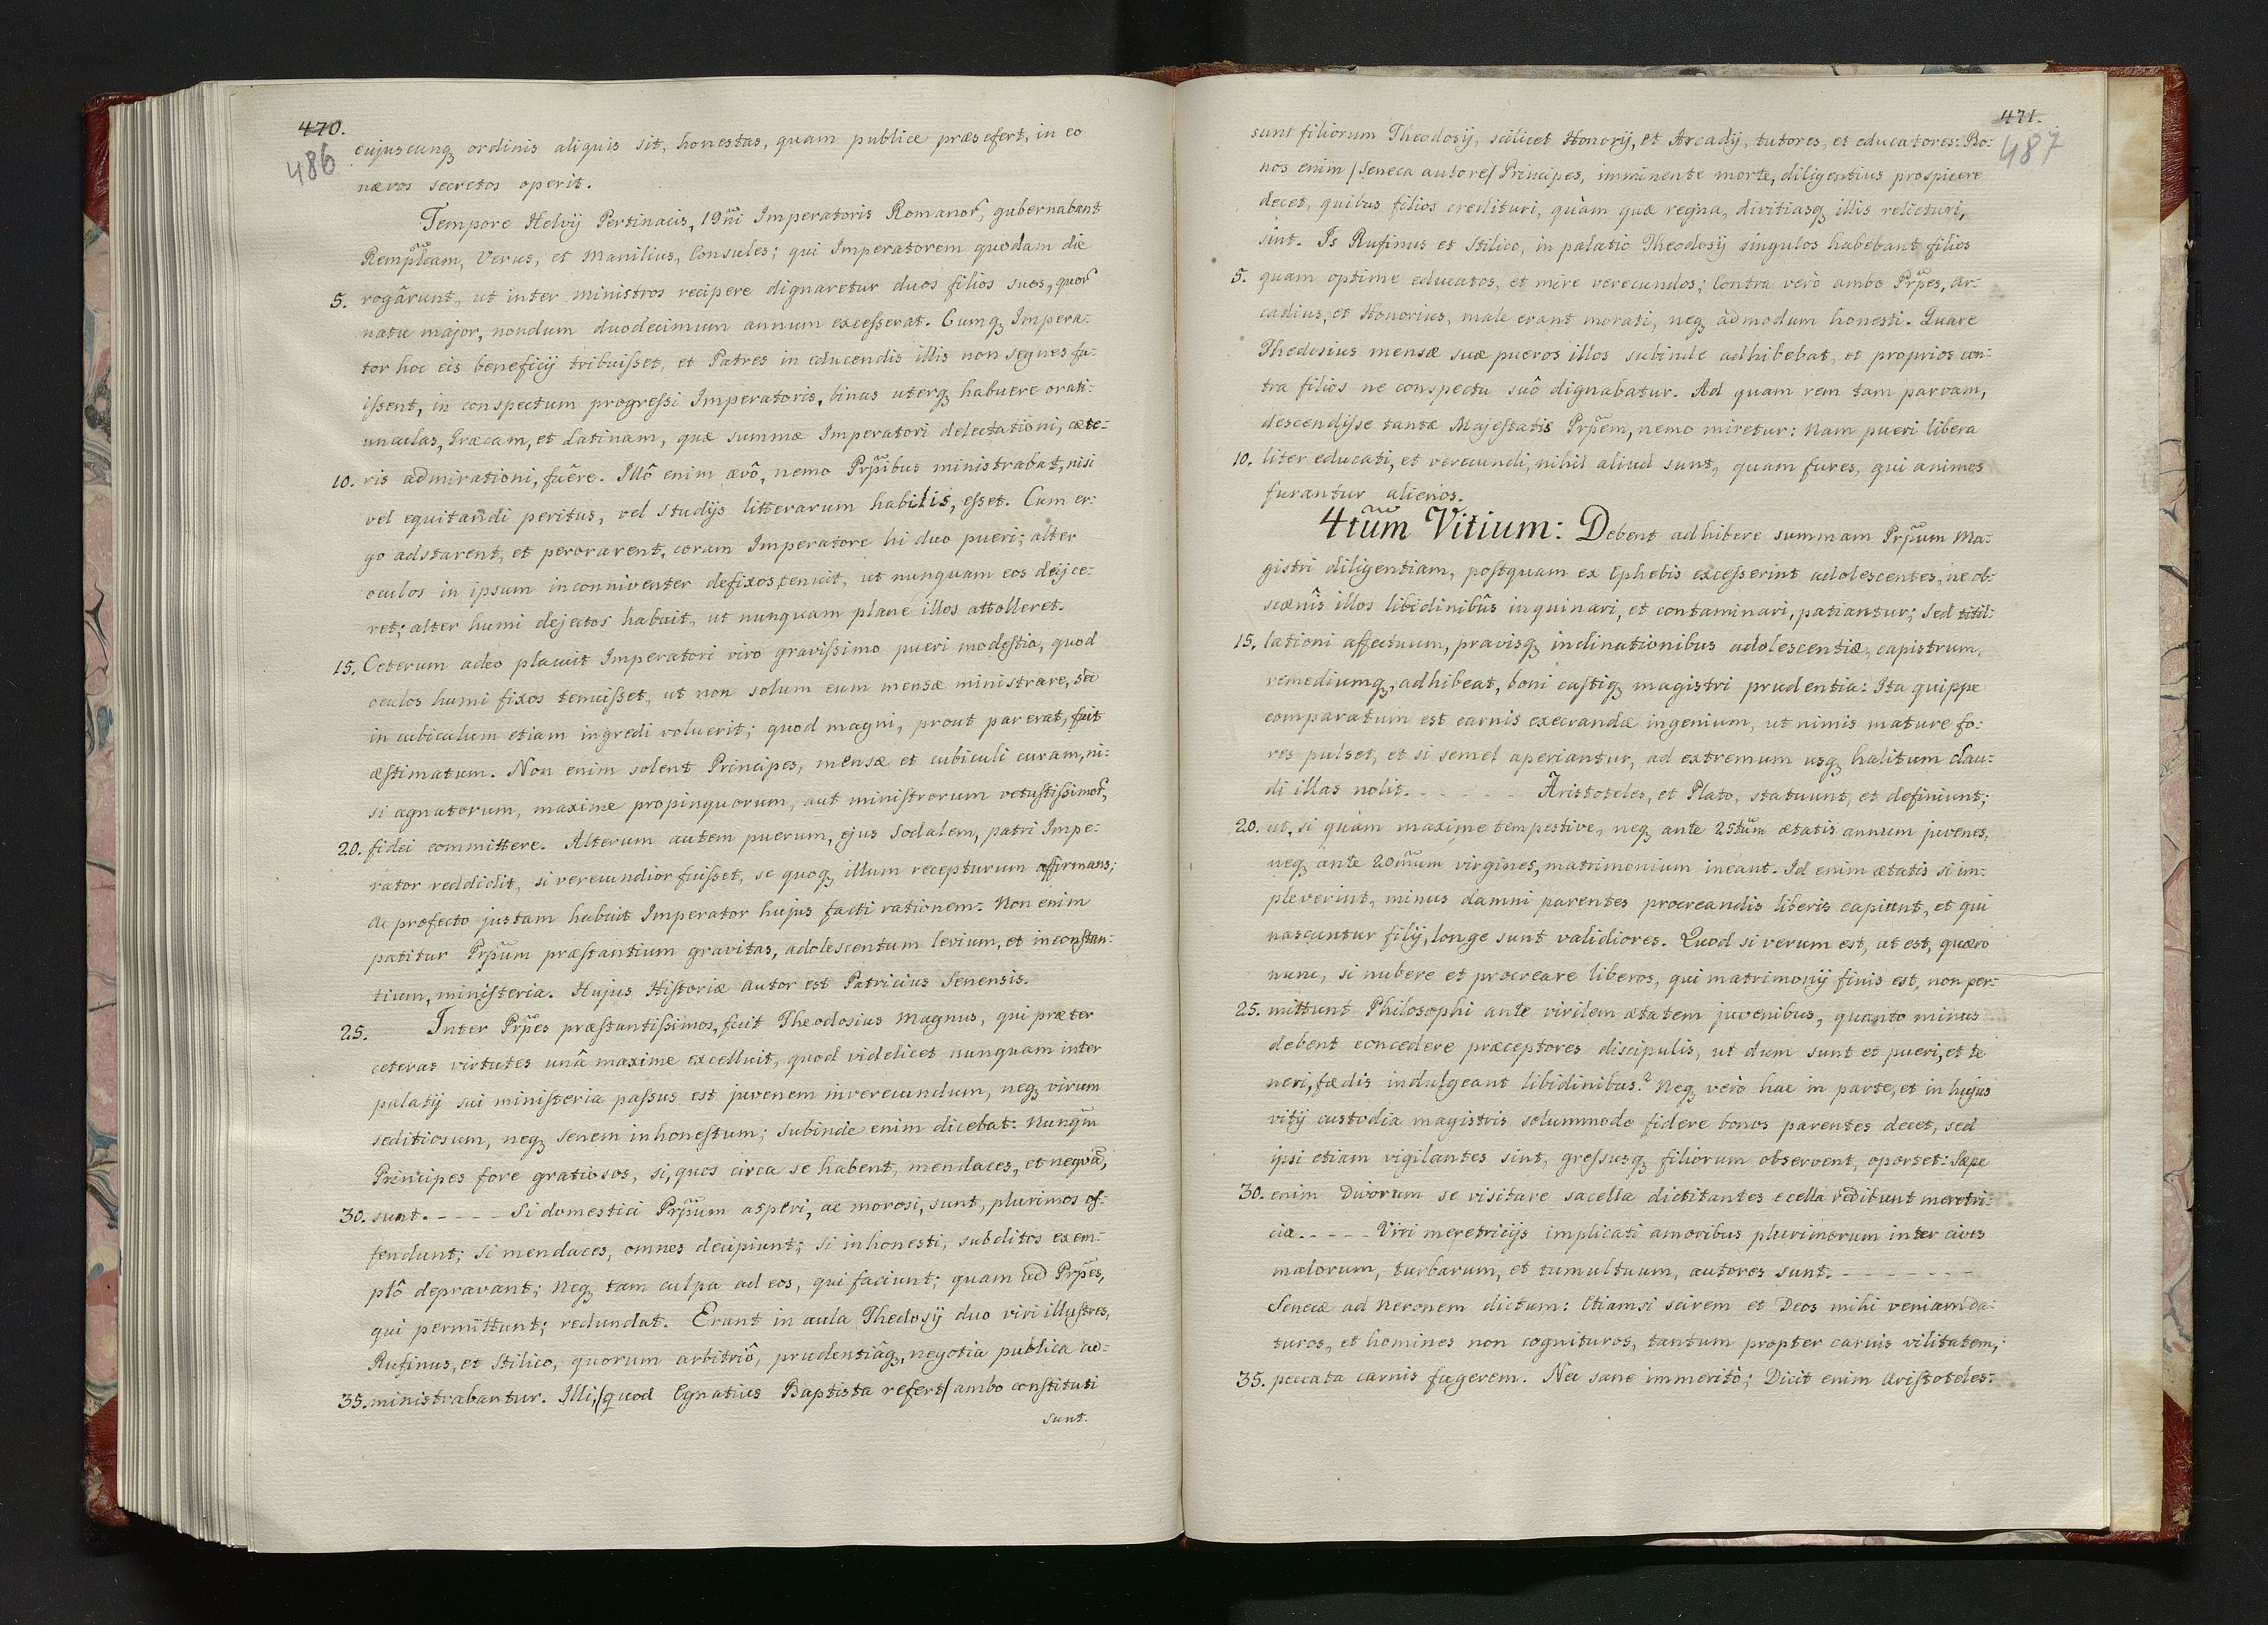 470.
486
cujuscunq ordinis aliquis sit, honestas, quam publice præsefert, in eo
nævos secretos operit.
Tempore Helvij Pertinacis, 19ni Imperatoris Romanor, gubernabant
Rempblcam, Verus, et Manilius, Consules; qui Imperatorem quodam die
5. rogârunt, ut inter ministros recipere dignaretur duos filios suos, quor
natu major, nondum duodecimum annum exceſserat. Cumq Impera:
tor hoc eis beneficij tribuiſset, et Patres in educendis illis non segnes fu:
iſsent, in conspectum progreſsi Imperatoris, binas uterq habuere orati:
unculas, Græcam, et Latinam, quæ summæ Imperatori delectationi, cæte:
10. ris admirationi, fuêre. Illô enim ævô, nemo Prpibus ministrabat, nisi
vel equitandi peritus, vel studijs litterarum habilis, eſset. Cum er:
go adstarent, et perorarent, coram Imperatore hi duo pueri; alter
oculos in ipsum inconniventer defixos tenuit, ut nunquam eos dejice:
ret; alter humi dejectos habuit, ut nunquam plane illos attolleret.
15. Ceterum adeo placuit Imperatori viro graviſsimo pueri modeſtia, quod
oculos humi fixos tenuiſset, ut non solum eum mensæ ministrare, sed
in cubiculum etiam ingredi voluerit; quod magni, prout par erat, fuit
æſtimatum. Non enim solent Principes, mensæ et cubiculi curam, ni:
si agnatorum, maxime propinquorum, aut miniſtrorum vetuſtiſsimor,
20. fidei committere. Alterum autem puerum, ejus Sodalem, patri Impe:
rator reddidit, si verecundior fuiſset, se quoq illum recepturum affirmans;
Ac profecto justam habuit Imperator hujus facti rationem: Non enim
patitur Prpum præſtantium gravitas, adolescentum levium, et inconſtan:
tium, miniſteria. Hujus Hiſtoriæ Autor est Patricius Senensis.
25. Inter Prpes præſtantiſsimos, fuit Theodosius Magnus, qui præter
ceteras virtutes unâ maxime excelluit, quod videlicet nunquam inter
palatij sui miniſteria paſsus est juvenem inverecundum, neq virum
seditiosum, neq senem inhoneſtum; subinde enim dicebat: Nunqm
Principes fore gratiosos, si, quos circa se habent, mendaces, et neqvã,
30. sunt. - - - - Si domestici Prpum asperi, ac morosi, sunt, plurimos of:
fendunt; Si mendaces, omnes decipiunt; Si inhonesti, subditos exem:
plô depravant; Neq tam culpa ad eos, qui faciunt; quam ad Prpes,
qui permittunt; redundat. Erant in aula Thedosij duo viri illuſtres,
Rufinus, et Stilico, quorum arbitriô, prudentiâq, negotia publica ad:
35. ministrabantur. Illi, /quod Egnatius Baptista refert/ ambo conſtituti
sunt.
471.
487
sunt filiorum Theodosij, scilicet Honorij, et Arcadij, tutores, et educatores: Bo:
nos enim /Seneca autore/ Principes, imminente morte, diligentius prospicere
decet, quibus filios credituri, quàm quæ regna, divitiasq illis relicturi,
sint. Is Rufinus et Stilico, in palatio Theodosij singulos habebant filios
5. quam optime educatos, et mire verecundos; Contra verò ambo Prpes, Ar:
cadius, et Honorius, male erant morati, neq admodum honesti. Quare
Thedosius mensæ suæ pueros illos subinde adhibebat, et proprios con:
tra filios ne conspectu suô dignabatur. Ad quam rem tam parvam,
descendiſse tantæ Majeſtatis Prpem, nemo miretur: Nam pueri libera
10. liter educati, et verecundi, nihil aliud sunt, quam fures, qui animos
furantur alienos.
4tum Vitium: Debent adhibere summam Prpum Ma:
gistri diligentiam, poſtquam ex Ephebis exceſserint adolescentes, ne ob:
scænis illos libidinibûs inquinari, et contaminari, patiantur; Sed titil:
15. lationi affectuum, pravisq inclinationibus adolescentiæ, capistrum,
remediumq, adhibeat, boni caſtiq magistri prudentia: Ita quippe
comparatum est carnis execrandæ ingenium, ut nimis mature fo:
res pulset, et si semel aperiantur, ad extremum usq halitum clau:
di illas nolit. - - - - - - Aristoteles, et Plato, statuunt, et definiunt;
20. ut, si quàm maxime tempestive, neq ante 25tum ætatis annum juvenes,
neq ante 20mum virgines, matrimonium ineant. Id enim ætatis si im:
pleverint, minus damni parentes procreandis liberis capiunt, et qui
nascuntur filij, longe sunt validiores. Quod si verum est, ut est, quæro
nunc, si nubere et procreare liberos, qui matrimonij finis est, non per:
25. mittunt Philosophi ante virilem ætatem juvenibus, quanto minus
debent concedere præceptores discipulis, ut dum sunt et pueri, et te
neri, fædis indulgeant libidinibus? Neq verò hac in parte, et in hujus
vitij custodia magistris solummodo fidere bonos parentes decet, sed
ipsi etiam vigilantes sint, greſsusq filiorum observent, oportet: Sæpe
30. enim Divorum se visitare sacella dictitantes e cella redibunt meretri:
cia. - - - - - Viri meretricijs implicati amoribus plurimorum inter cives
malorum, turbarum, et tumultuum, autores sunt. - - - - - - -
Senecæ ad Neronem dictum: Etiamsi scirem et Deos mihi veniam da:
turos, et homines non cognituros, tantum propter carnis vilitatem,
35. peccata carnis fugerem. Nec sane immeritò; Dicit enim Ariſtoteles: